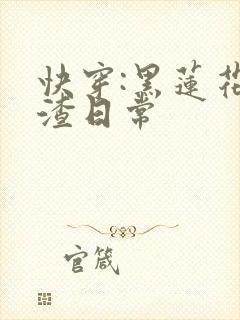 快穿:黑莲花
渣日常
官箴